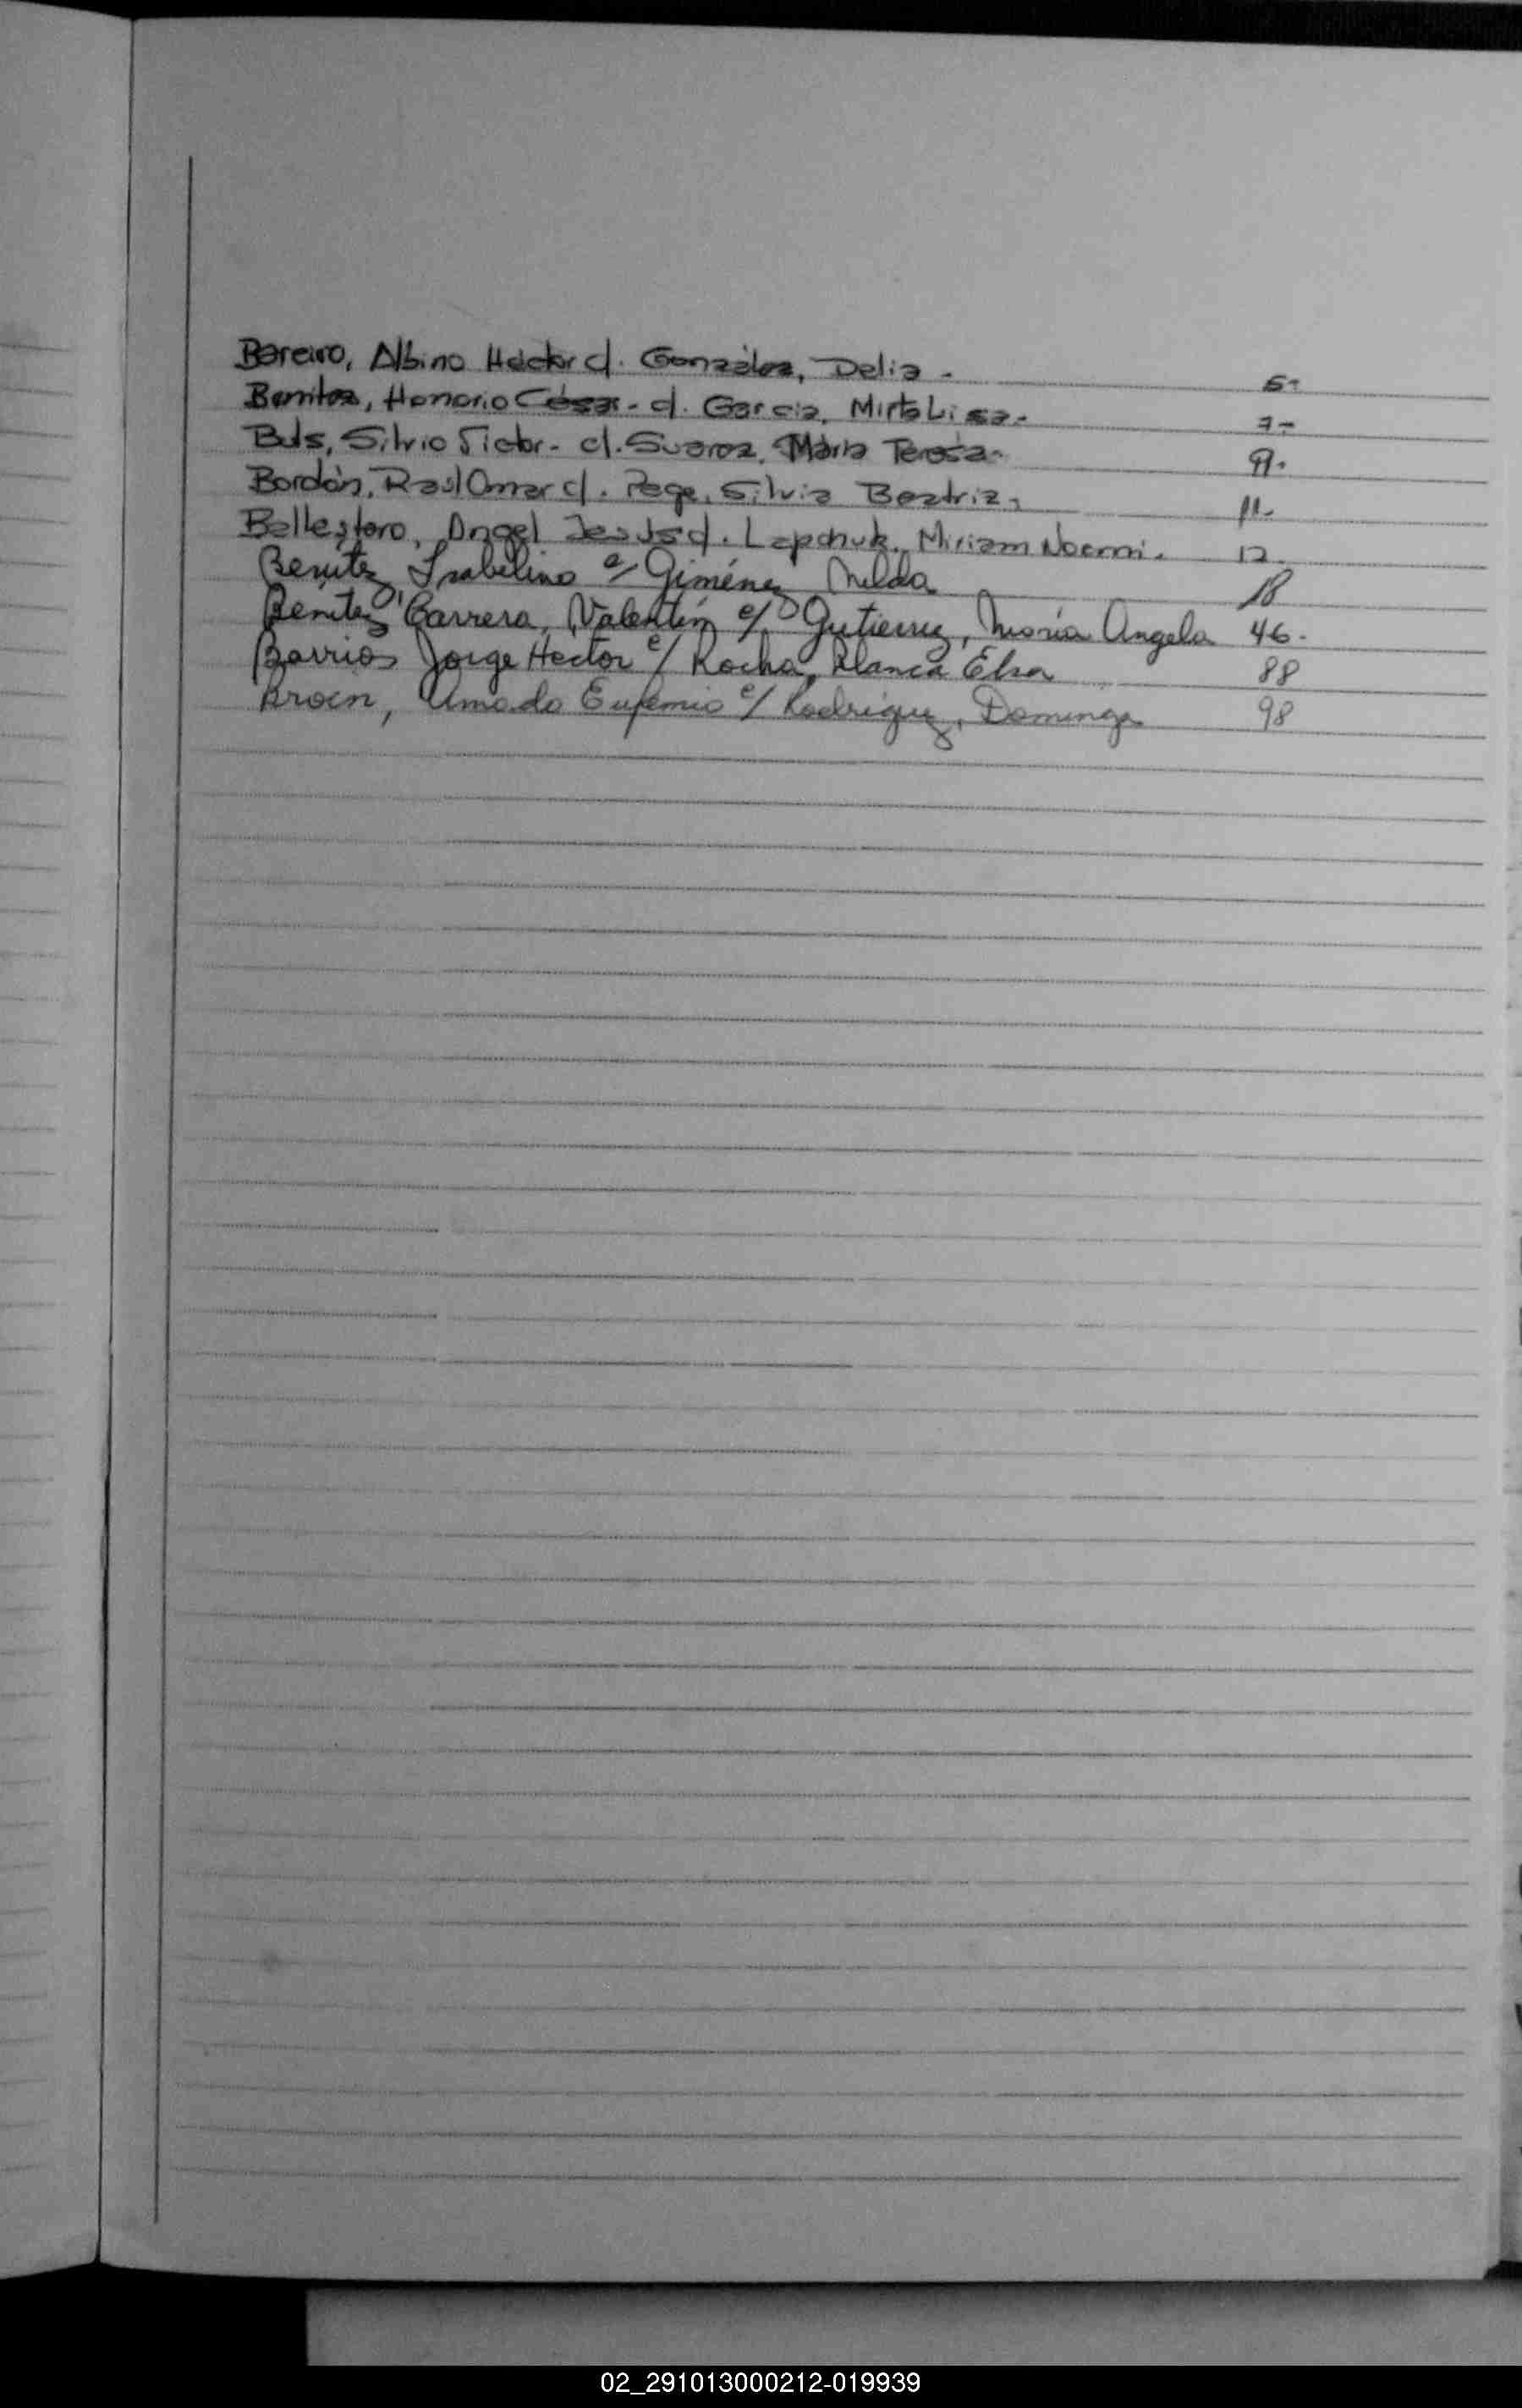 Bareiro, Albino Hector c/. González, Delia - 5-
Benitez, Honorio César - c/. Garcia, Mirta Lisa - 7-
Buls, Silvio Victor - c/. Suarez, Maria Teresa - 9.
Bordón, Raul Omar c/. Pege, Silvia Beatriz, 11-
Ballestero, Angel Jesus c/. Lapchuk, Miriam Noemi. 12.
Benitez, Isabelino c/ Giménez Nelda 18
Benitez Carrera, Valentín c/ Gutierrez, María Angela 46.
Barrios Jorge Hector c/ Rocha, Blanca Elsa 88
Amado Eufemio c/ Rodriguez, Dominga 98
02_291013000212-019939